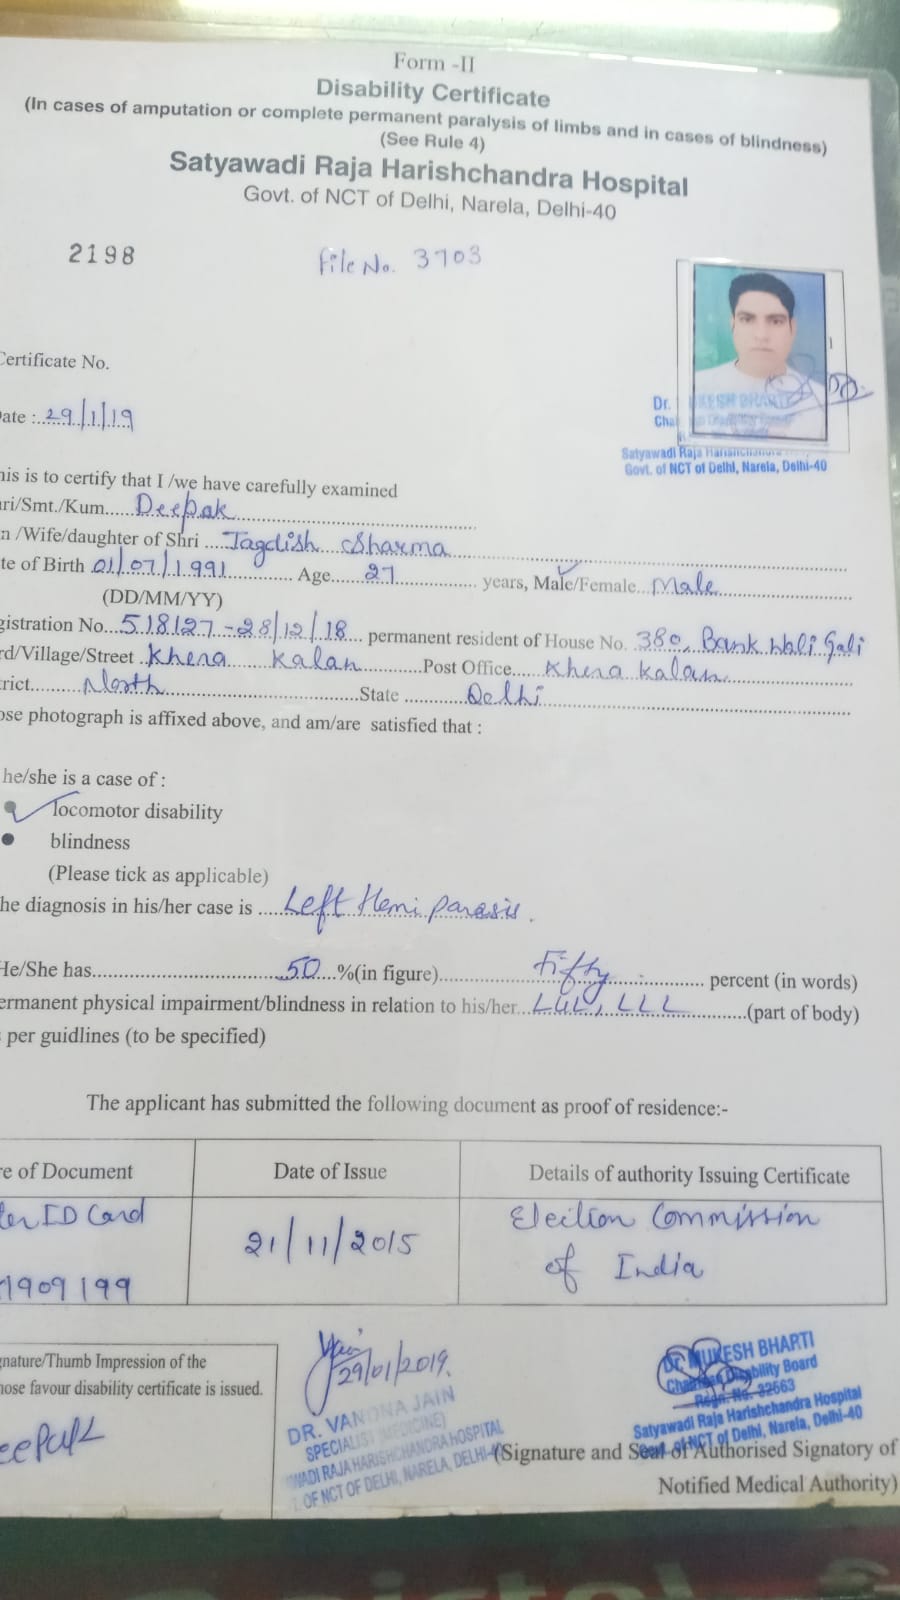 Form -II
Disability Certificate
(In cases of amputation or complete permanent paralysis of limbs and in cases of blindness)
(See Rule 4)
Satyawadi Raja Harishchandra Hospital
Govt. of NCT of Delhi, Narela, Delhi-40
2198 File No. 3703
Certificate No.
Date :..29/1/19
Dr. MUKESH BHARTI
Satyawadi Raja Harishchandra
Govt. of NCT of Delhi, Narela, Delhi-40
his is to certify that I /we have carefully examined
ri/Smt./Kum.....Deepak
n /Wife/daughter of Shri ....Jagdish Sharma
te of Birth 01/07/1991 Age.....27 years, Male/Female...Male
(DD/MM/YY)
gistration No...518127-28/12/18... permanent resident of House No. 380, Bank Wali Gali
rd/Village/Street Khera Kalan Post Office..... Khera Kalan
rict........North State ............Delhi
ose photograph is affixed above, and am/are satisfied that :
he/she is a case of :
locomotor disability
blindness
(Please tick as applicable)
he diagnosis in his/her case is .....Left Hemi parasis.
He/She has..............................50...%(in figure)..............Fifty.............. percent (in words)
ermanent physical impairment/blindness in relation to his/her...LUL, LLL...........(part of body)
per guidlines (to be specified)
The applicant has submitted the following document as proof of residence:-
re of Document Date of Issue Details of authority Issuing Certificate
ter ID Card 21/11/2015 Election Commission
1909199 of India
gnature/Thumb Impression of the
hose favour disability certificate is issued.
eepak
29/01/2019.
DR. VANDNA JAIN
SPECIALIST (MEDICINE)
WADI RAJA HARISHCHANDRA HOSPITAL
OF NCT OF DELHI, NARELA, DELHI-4
Dr. MUKESH BHARTI
Chairman Disability Board
Regn. No. 32663
Satyawadi Raja Harishchandra Hospital
Govt. of NCT of Delhi, Narela, Delhi-40
(Signature and Seal of Authorised Signatory of
Notified Medical Authority)